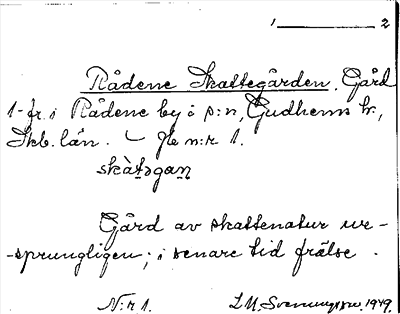 1 2
Rådene Skattegården. Gård
1-fr. i Rådene by i s:n, Gudhems hd.,
Skb. län. – Je n:r 1.
skàt̠əgan̠
Gård av skattenatur ur-
-sprungligen; i senare tid frälse.
N:r 1. L.M. Svenungsson. 1949.